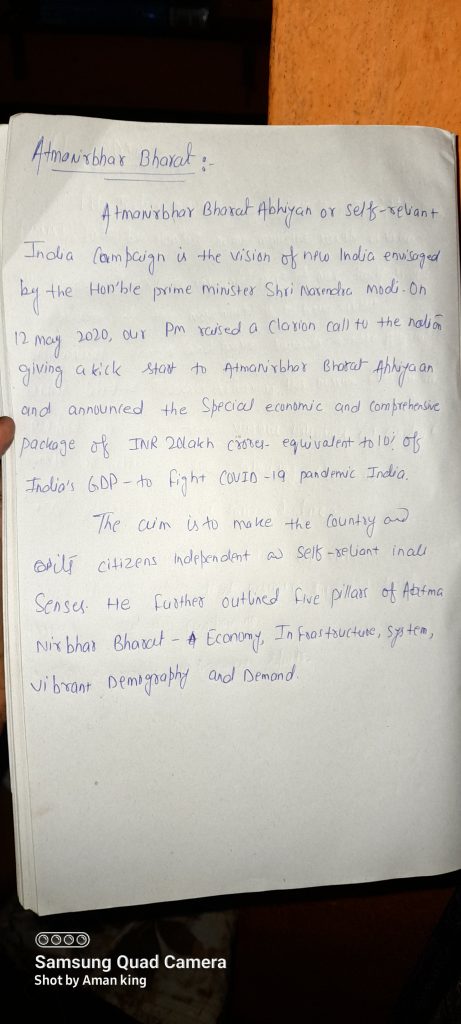 Atmanirbhar Bharat :-
Atmanirbhar Bharat Abhiyan or self-reliant
India Campaign is the vision of new India envisaged
by the Hon'ble prime minister Shri Narendra modi. On
12 may 2020, our Pm raised a Clarion call to the nation
giving a kick start to Atmanirbhar Bharat Abhiyaan
and announced the Special economic and Comprehensive
package of INR 20lakh crores- equivalent to 10% of
India's GDP - to fight COVID-19 pandemic India.
The aim is to make the Country and
its citizens independent as self-reliant in all
Senses. He further outlined five pillars of Aatma
Nirbhar Bharat - Economy, Infrastructure, System,
vibrant Demography and Demand.
Samsung Quad Camera
Shot by Aman king